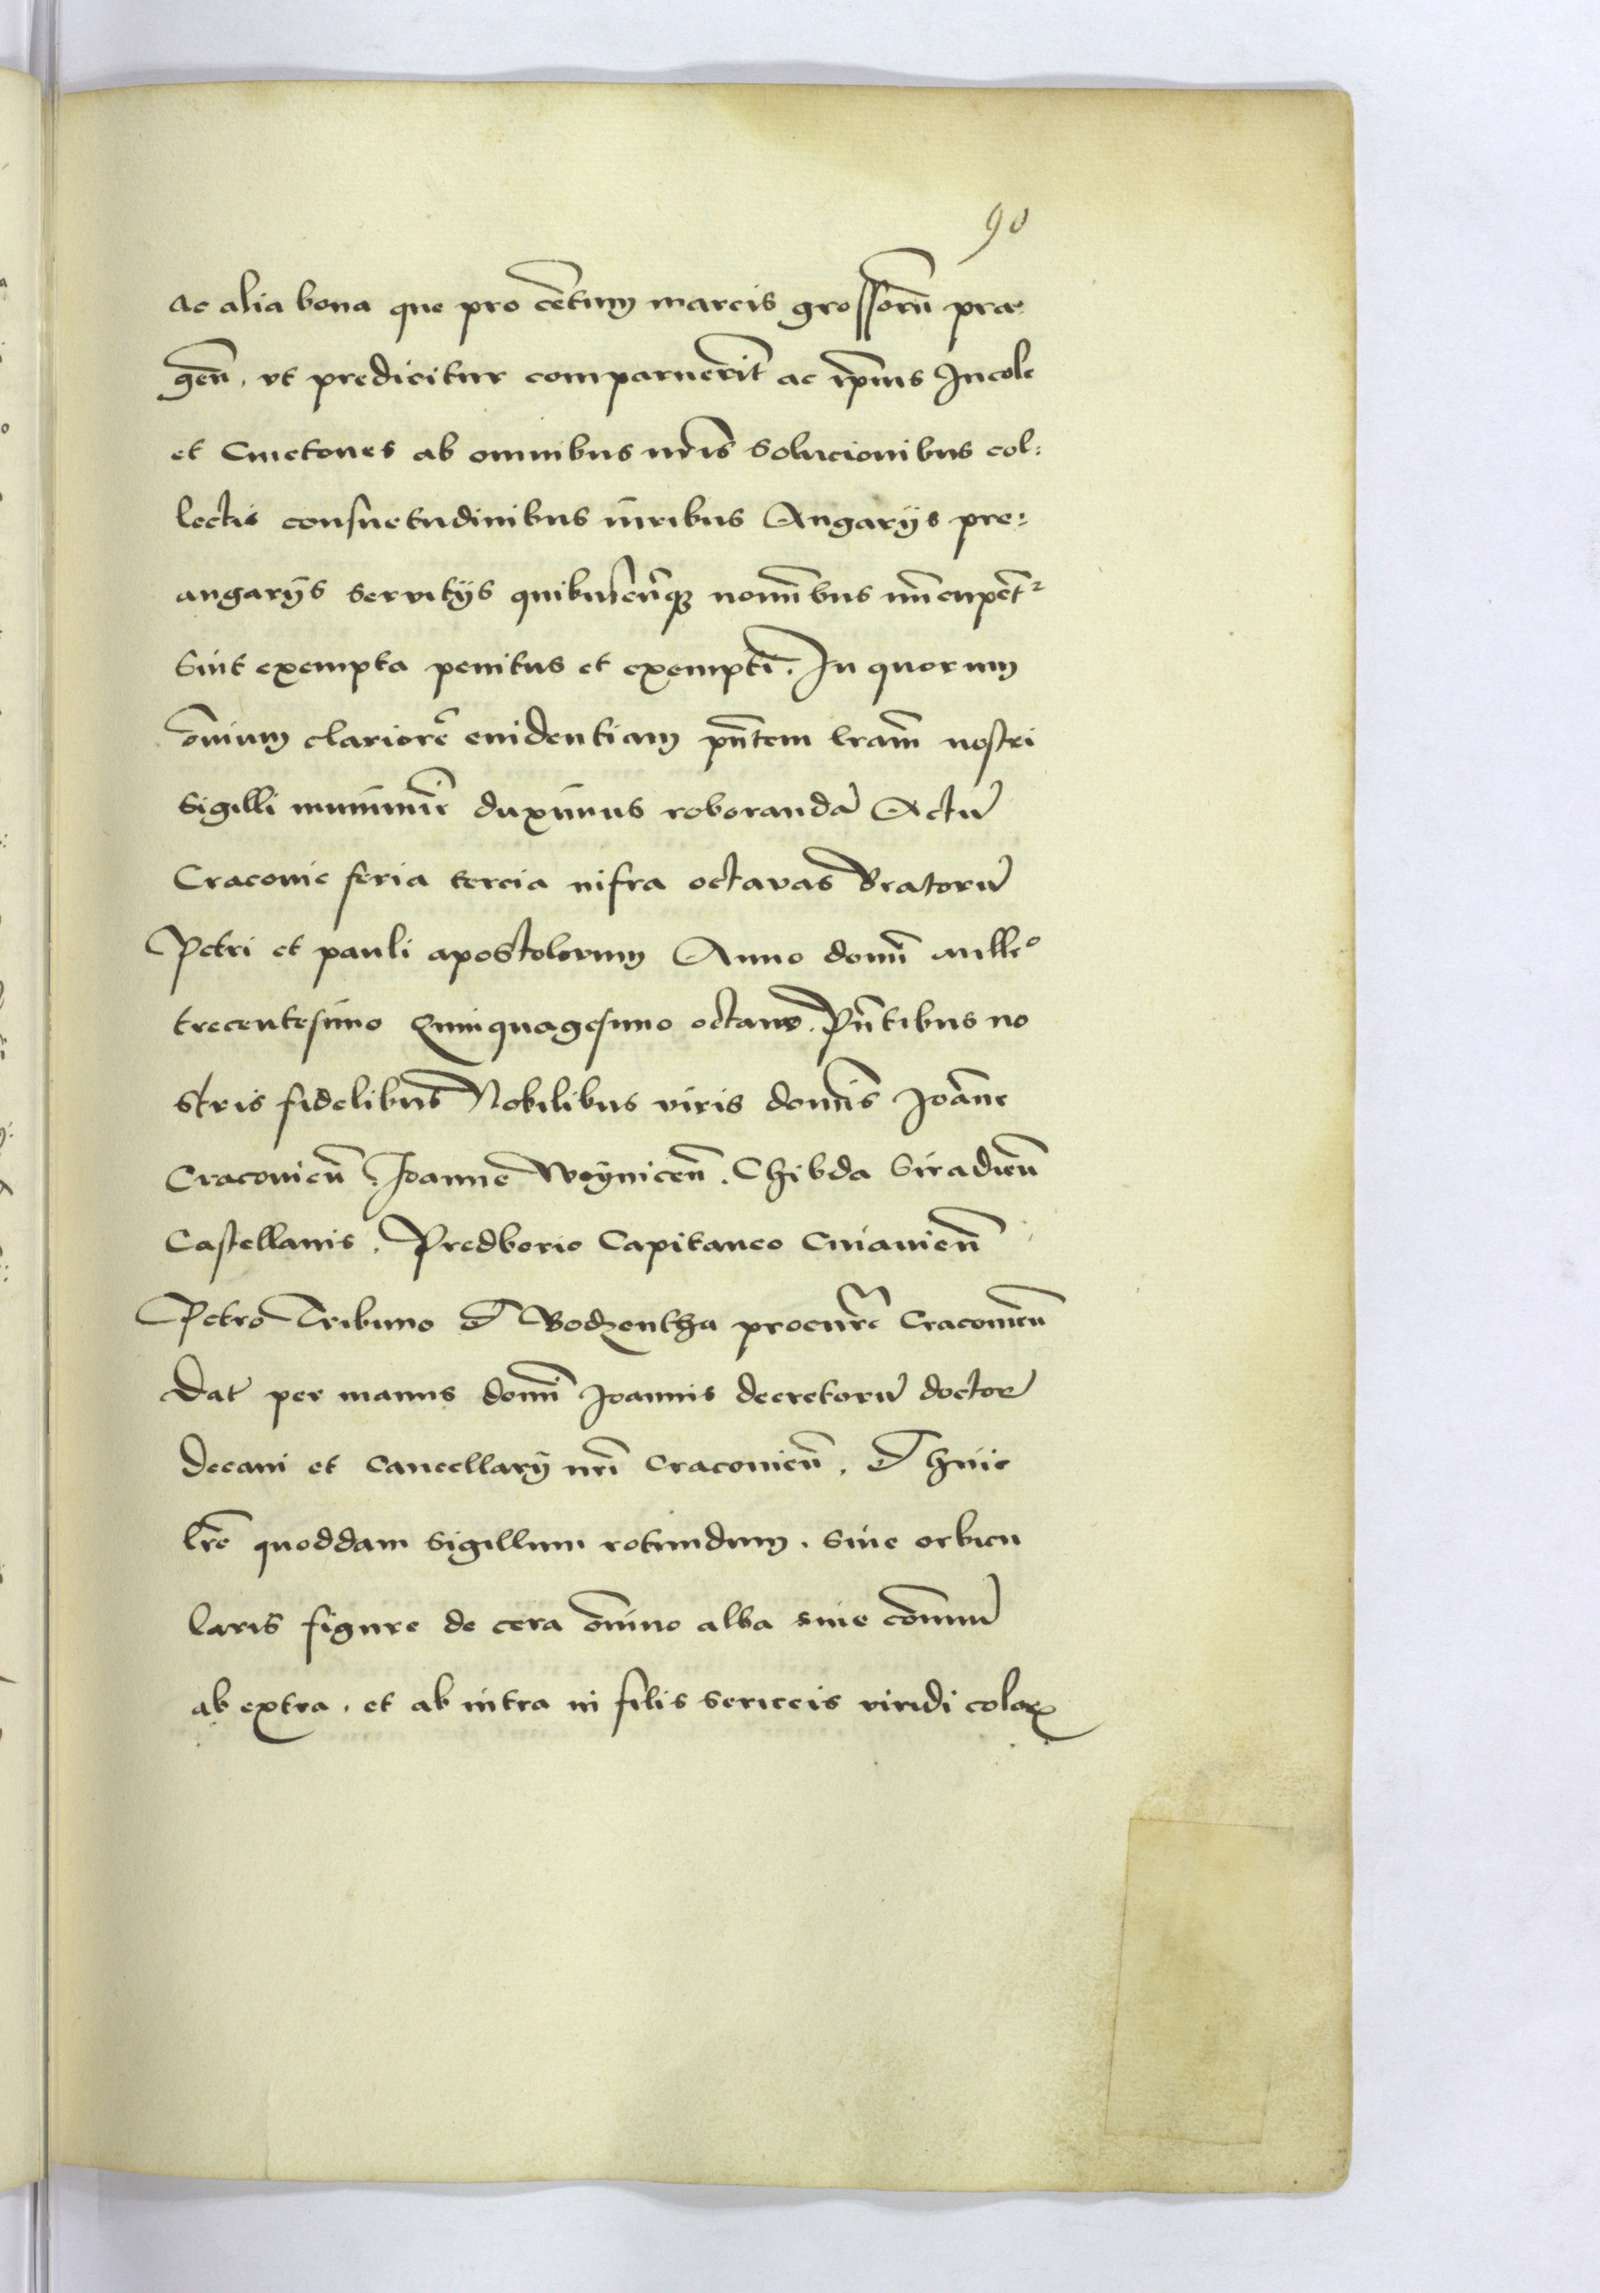 90
ac alia bona que pro cētum marcis grossorū prae
geñ. vt predicitur comparuerīt ac ip̄ius Incole
et Cmetones ab omnibus nr̄is solucionibus col:
lectis consuetudinibus iuribus Angarijs pre:
angarijs servitijs quibuscūq; nomībus nūcupēt²
sint exempta penitus et exempti. In quorum
om̄ium clariorē euidentiam pn̄tem lr̄am nostri
sigilli munimīe duximus roborandā Actū
Craconie feria tercia infra octavas Beatorū
Petri et pauli apostolorum Anno domī mille°
trecentesimo Quinquagesimo octavo. Pn̄tibus no
stris fidelibus Nobilibus viris domīs Joāne
Cracovieñ. Joanne Woyniceñ. Chibda Siradieñ
Castellanis. Predborio Capitaneo Cuiavieñ
Petro Tribuno et Bodzentha procur̄e Cracovieñ
Dat per manus domī Joannis decretorū doctor
decani et Cancellarij nr̄i Cracovieñ. Et huic
lr̄e quoddam sigillum rotundum. siue orbicu
laris figure de cera om̄ino alba siue com̄uni
ab extra. et ab intra in filis sericeis viridi color